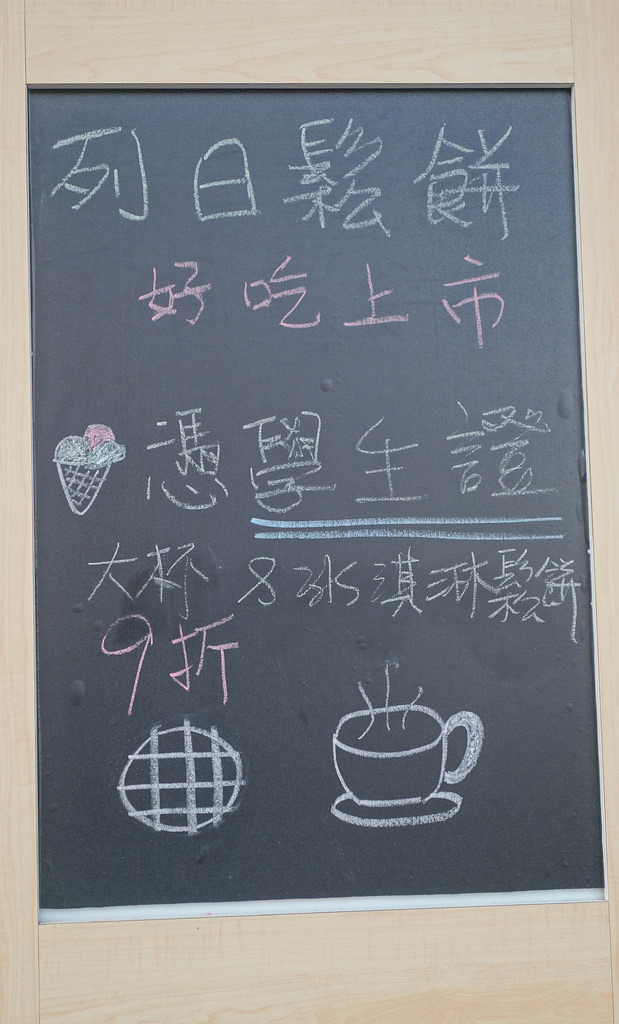 列日鬆餅
好吃上市
憑學生證
大杯 & 冰淇淋鬆餅
9折